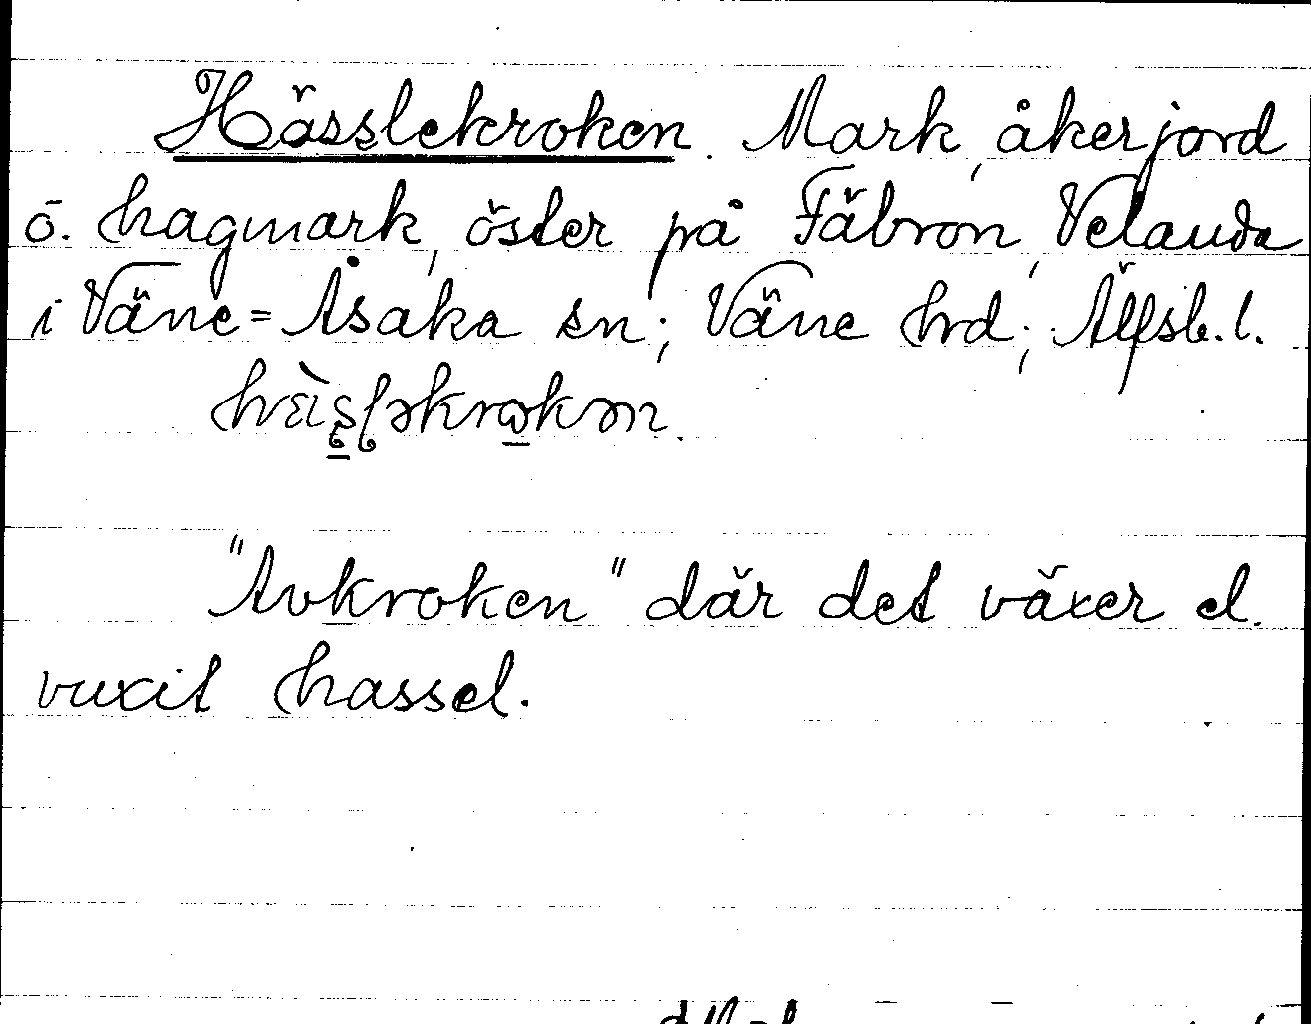 Hässlekroken. Mark, åkerjord
o. hagmark, öster på Fäbron, Velanda
i Väne=Åsaka sn; Väne hrd; Älfsb. l.
"Avkroken" där det växer el.
vuxit hassel.